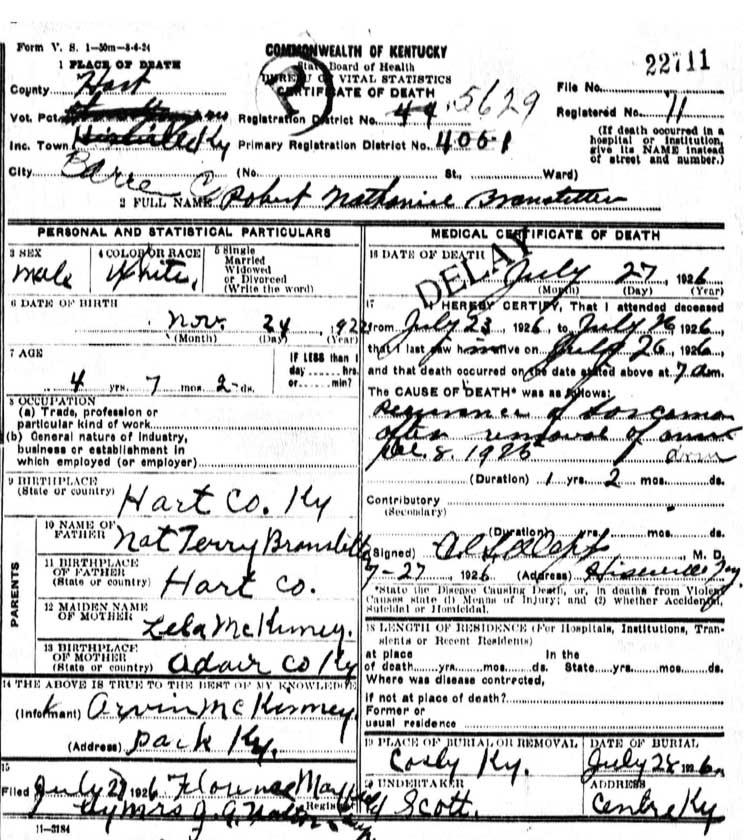 Form V. S. 1-50m-8-6-24
COMMONWEALTH OF KENTUCKY
State Board of Health
BUREAU OF VITAL STATISTICS
CERTIFICATE OF DEATH
D
22711
1 PLACE OF DEATH
County Hart
File No.
Vot. Pct.
Registration District No. 44 5629
Registered No. 11
Inc. Town Ky
Primary Registration District No. 4061
(If death occurred in a hospital or institution, give its NAME instead of street and number.)
City Barren C (No. St., Ward)
2 FULL NAME Robert Nathaniel Branstetter
PERSONAL AND STATISTICAL PARTICULARS
3 SEX
male
4 COLOR OR RACE
White
5 Single
Married
Widowed
or Divorced
(Write the word)
6 DATE OF BIRTH
Nov. 24, 192
(Month) (Day) (Year)
7 AGE
4 yrs. 7 mos. 2 ds.
IF LESS than 1
day hrs.
or min?
8 OCCUPATION
(a) Trade, profession or
particular kind of work
(b) General nature of industry,
business or establishment in
which employed (or employer)
9 BIRTHPLACE
(State or country) Hart Co. Ky
PARENTS
10 NAME OF
FATHER Nat Terry Branstetter
11 BIRTHPLACE
OF FATHER
(State or country) Hart Co.
12 MAIDEN NAME
OF MOTHER
Lela McKinney.
13 BIRTHPLACE
OF MOTHER
(State or country) Adair Co Ky
14 THE ABOVE IS TRUE TO THE BEST OF MY KNOWLEDGE
(Informant) Arvin McKinney
(Address) Park Ky.
15
Filed July 27 1926 Florence
Registrar
By Mrs J. G.
11-3184
MEDICAL CERTIFICATE OF DEATH
DELAY
16 DATE OF DEATH
July 27, 1926
(Month) (Day) (Year)
17 I HEREBY CERTIFY, That I attended deceased
from July 23 1926 to July 26 1926,
that I last saw him alive on July 26, 1926
and that death occurred on the date stated above at 7 am.
The CAUSE OF DEATH* was as follows:
Recurrence of Sarcoma
after removal of arm
8. 1925
(Duration) 1 yrs. 2 mos. ds.
Contributory
(Secondary)
(Duration) yrs. mos. ds.
(Signed) , M. D.
7-27, 1926 (Address) Hiseville Ky
*State the Disease Causing Death, or, in deaths from Violent
Causes state (1) Means of Injury; and (2) whether Accidental,
Suicidal or Homicidal.
18 LENGTH OF RESIDENCE (For Hospitals, Institutions, Tran-
sients or Recent Residents)
at place In the
of death yrs. mos. ds. State yrs. mos. ds.
Where was disease contrected,
If not at place of death?
Former or
usual residence
19 PLACE OF BURIAL OR REMOVAL
Cosby Ky.
DATE OF BURIAL
July 28 1926
20 UNDERTAKER
Scott.
ADDRESS
Centre Ky